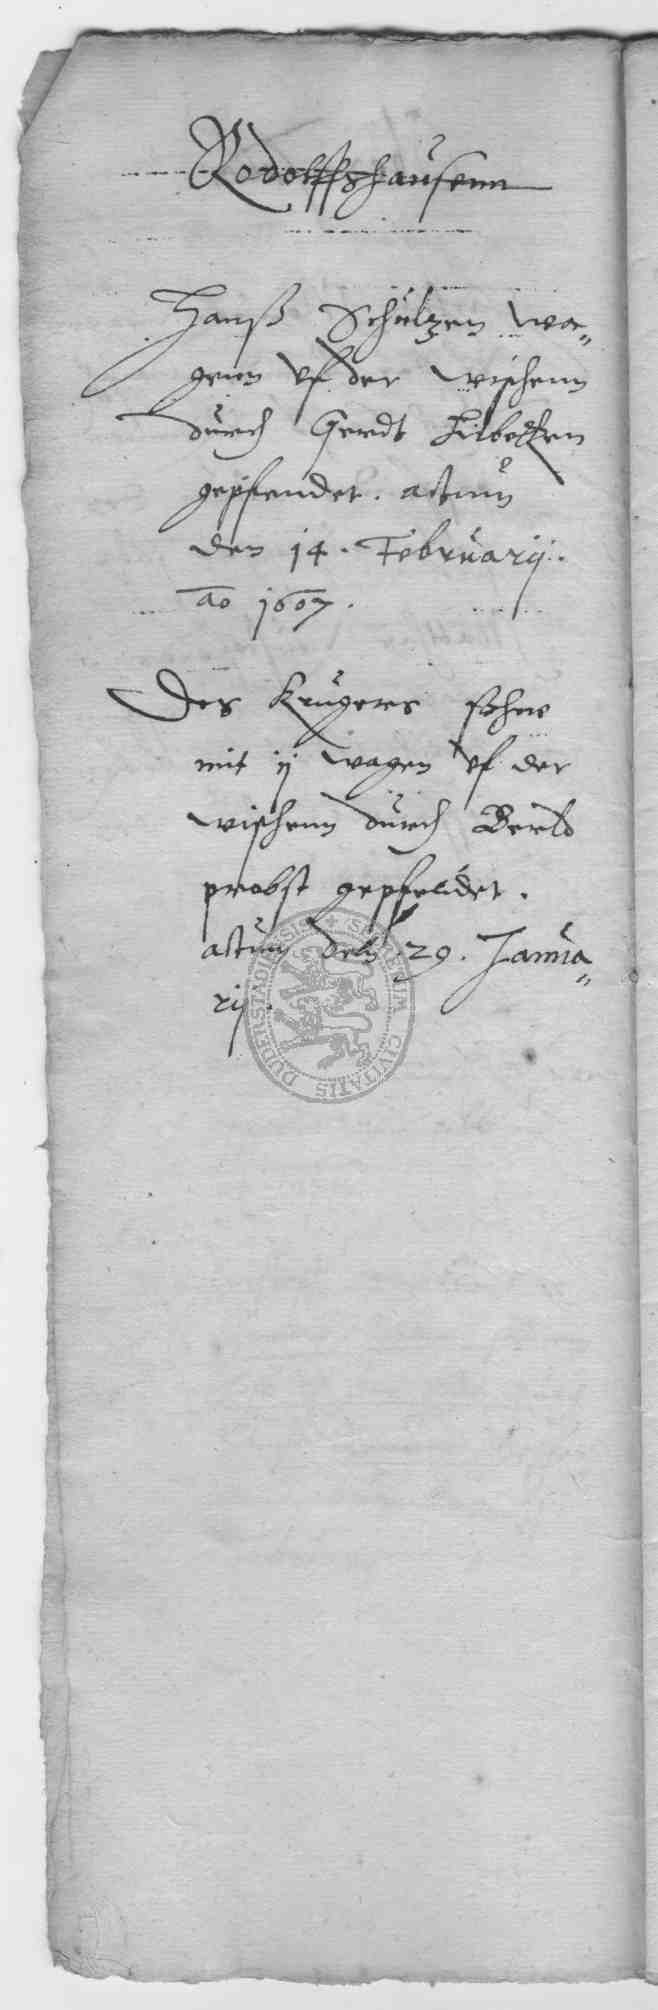 Rodolffshausenn
Hanß Schultzen wa„
genn vf der wischenn
durch Gerdt Hilbecken
gepfendet. actum
den 14. Februarij.
ao 1607.
Des Krugers sohne
mit ij wagen vf der
wischenn durch Berld
probst gepfendet.
actum den 29. Janua„
rij.
SIGILLUM CIVITATIS DUDERSTADENSIS